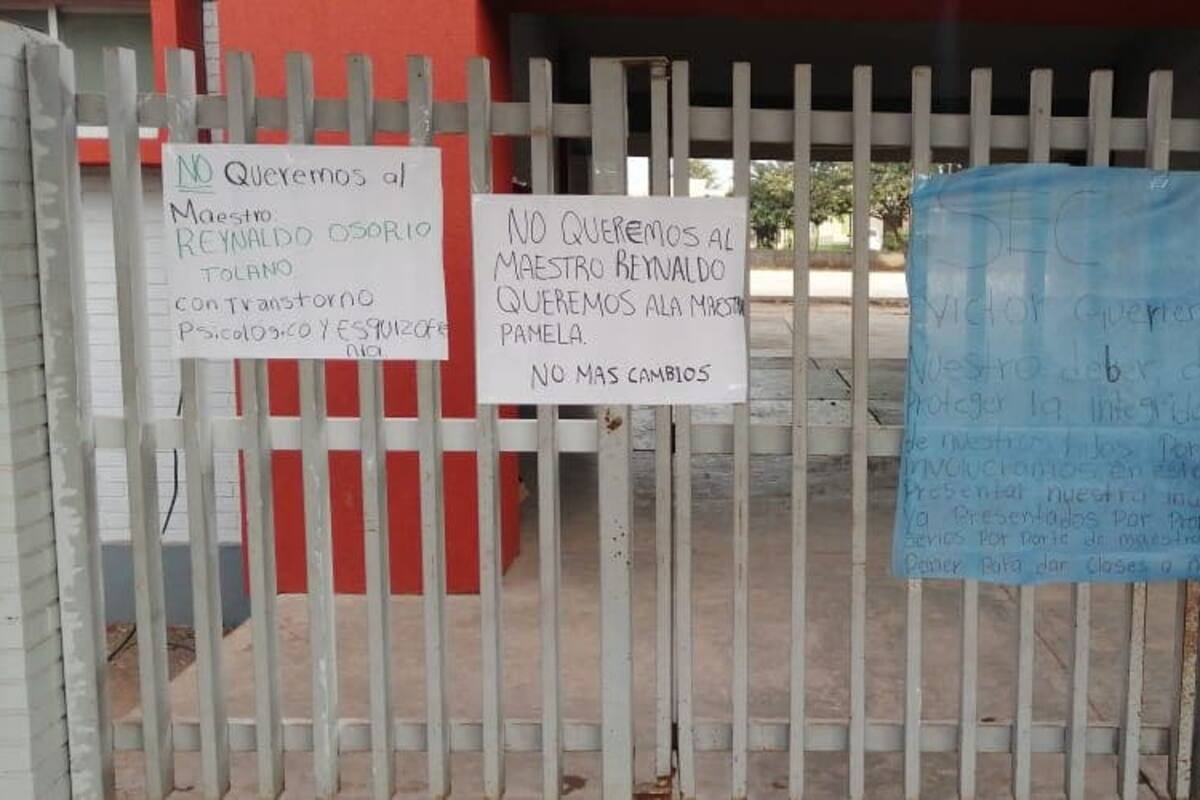 NO Queremos al
Maestro:
REYNALDO OSORIO
TOLANO
con Transtorno
Psicologico Y ESQUIZOFE
nia
NO QUEREMOS AL
MAESTRO REYNALDO
QUEREMOS ALA MAESTRA
PAMELA.
NO MAS CAMBIOS
SEC
Victor Guerrer
Nuestro deber
Proteger la integrid
de nuestros Por
INVOLUCRAMOS en
Presentar nuestra
Ya Presentados Por
serios Por Parte de maestro
Poner Para dar clases a